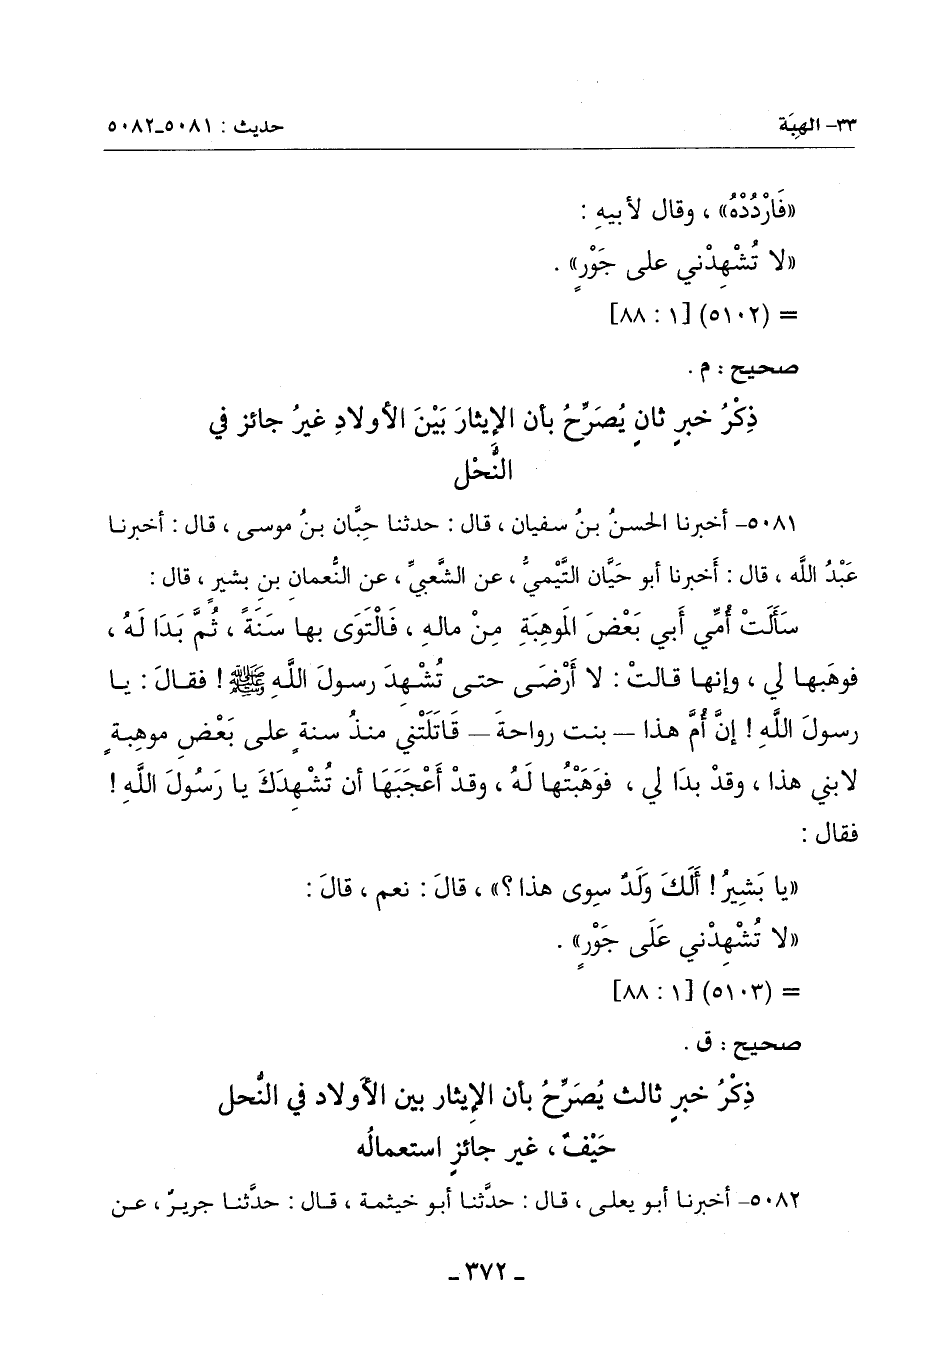 ٣٣- الهِبَة حديث : ٥٠٨١-٥٠٨٢
«فَارْدُدْهُ» ، وقال لأبيهِ :
«لا تُشْهِدْني على جَوْرٍ» .
= (٥١٠٢) [١ : ٨٨]
صحيح : م .
ذِكْرُ خبرٍ ثانٍ يُصَرِّحُ بأن الإيثارَ بَيْنَ الأولادِ غيرُ جائز في
النُّحْل
٥٠٨١- أخبرنا الحسنُ بنُ سفيان ، قال : حدثنا حِبَّان بنُ موسى ، قال : أخبرنا
عَبْدُ اللَّه ، قال : أَخبرنا أبو حَيَّان التَّيْميُّ ، عن الشَّعبيِّ ، عن النُّعمان بن بشيرٍ ، قال :
سَأَلَتْ أُمِّي أَبي بَعْضَ المَوهِبَةِ مِنْ مالهِ ، فَالْتَوَى بها سَنَةً ، ثُمَّ بَدَا لَهُ ،
فوهَبها لي ، وإنها قالتْ : لا أَرْضَى حتى تُشْهِدَ رسولَ اللَّهِ ﷺ ! فقالَ : يا
رسولَ اللَّهِ ! إنَّ أُمَّ هذا – بنت رواحةَ – قَاتَلَتْني منذُ سنةٍ على بَعْضِ موهِبةٍ
لابني هذا ، وقدْ بدَا لي ، فوَهَبْتُها لَهُ ، وقدْ أَعْجَبَهَا أن تُشْهِدَكَ يا رَسُولَ اللَّهِ !
فقال :
«يا بَشِيرُ ! أَلَكَ وَلَدٌ سِوى هذا ؟» ، قالَ : نعم ، قالَ :
«لا تُشْهِدْني عَلَى جَوْرٍ» .
= (٥١٠٣) [١ : ٨٨]
صحيح : ق .
ذِكْرُ خبرٍ ثالث يُصَرِّحُ بأن الإيثار بين الأولاد في النُّحل
حَيْفٌ ، غير جائزٍ استعمالُه
٥٠٨٢- أخبرنا أبو يعلى ، قال : حدَّثنا أبو خيثمة ، قال : حدَّثنا جريرٌ ، عن
- ٣٧٢ -